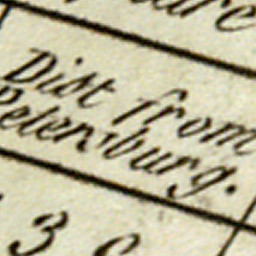 Dist from
Petersburg.
3